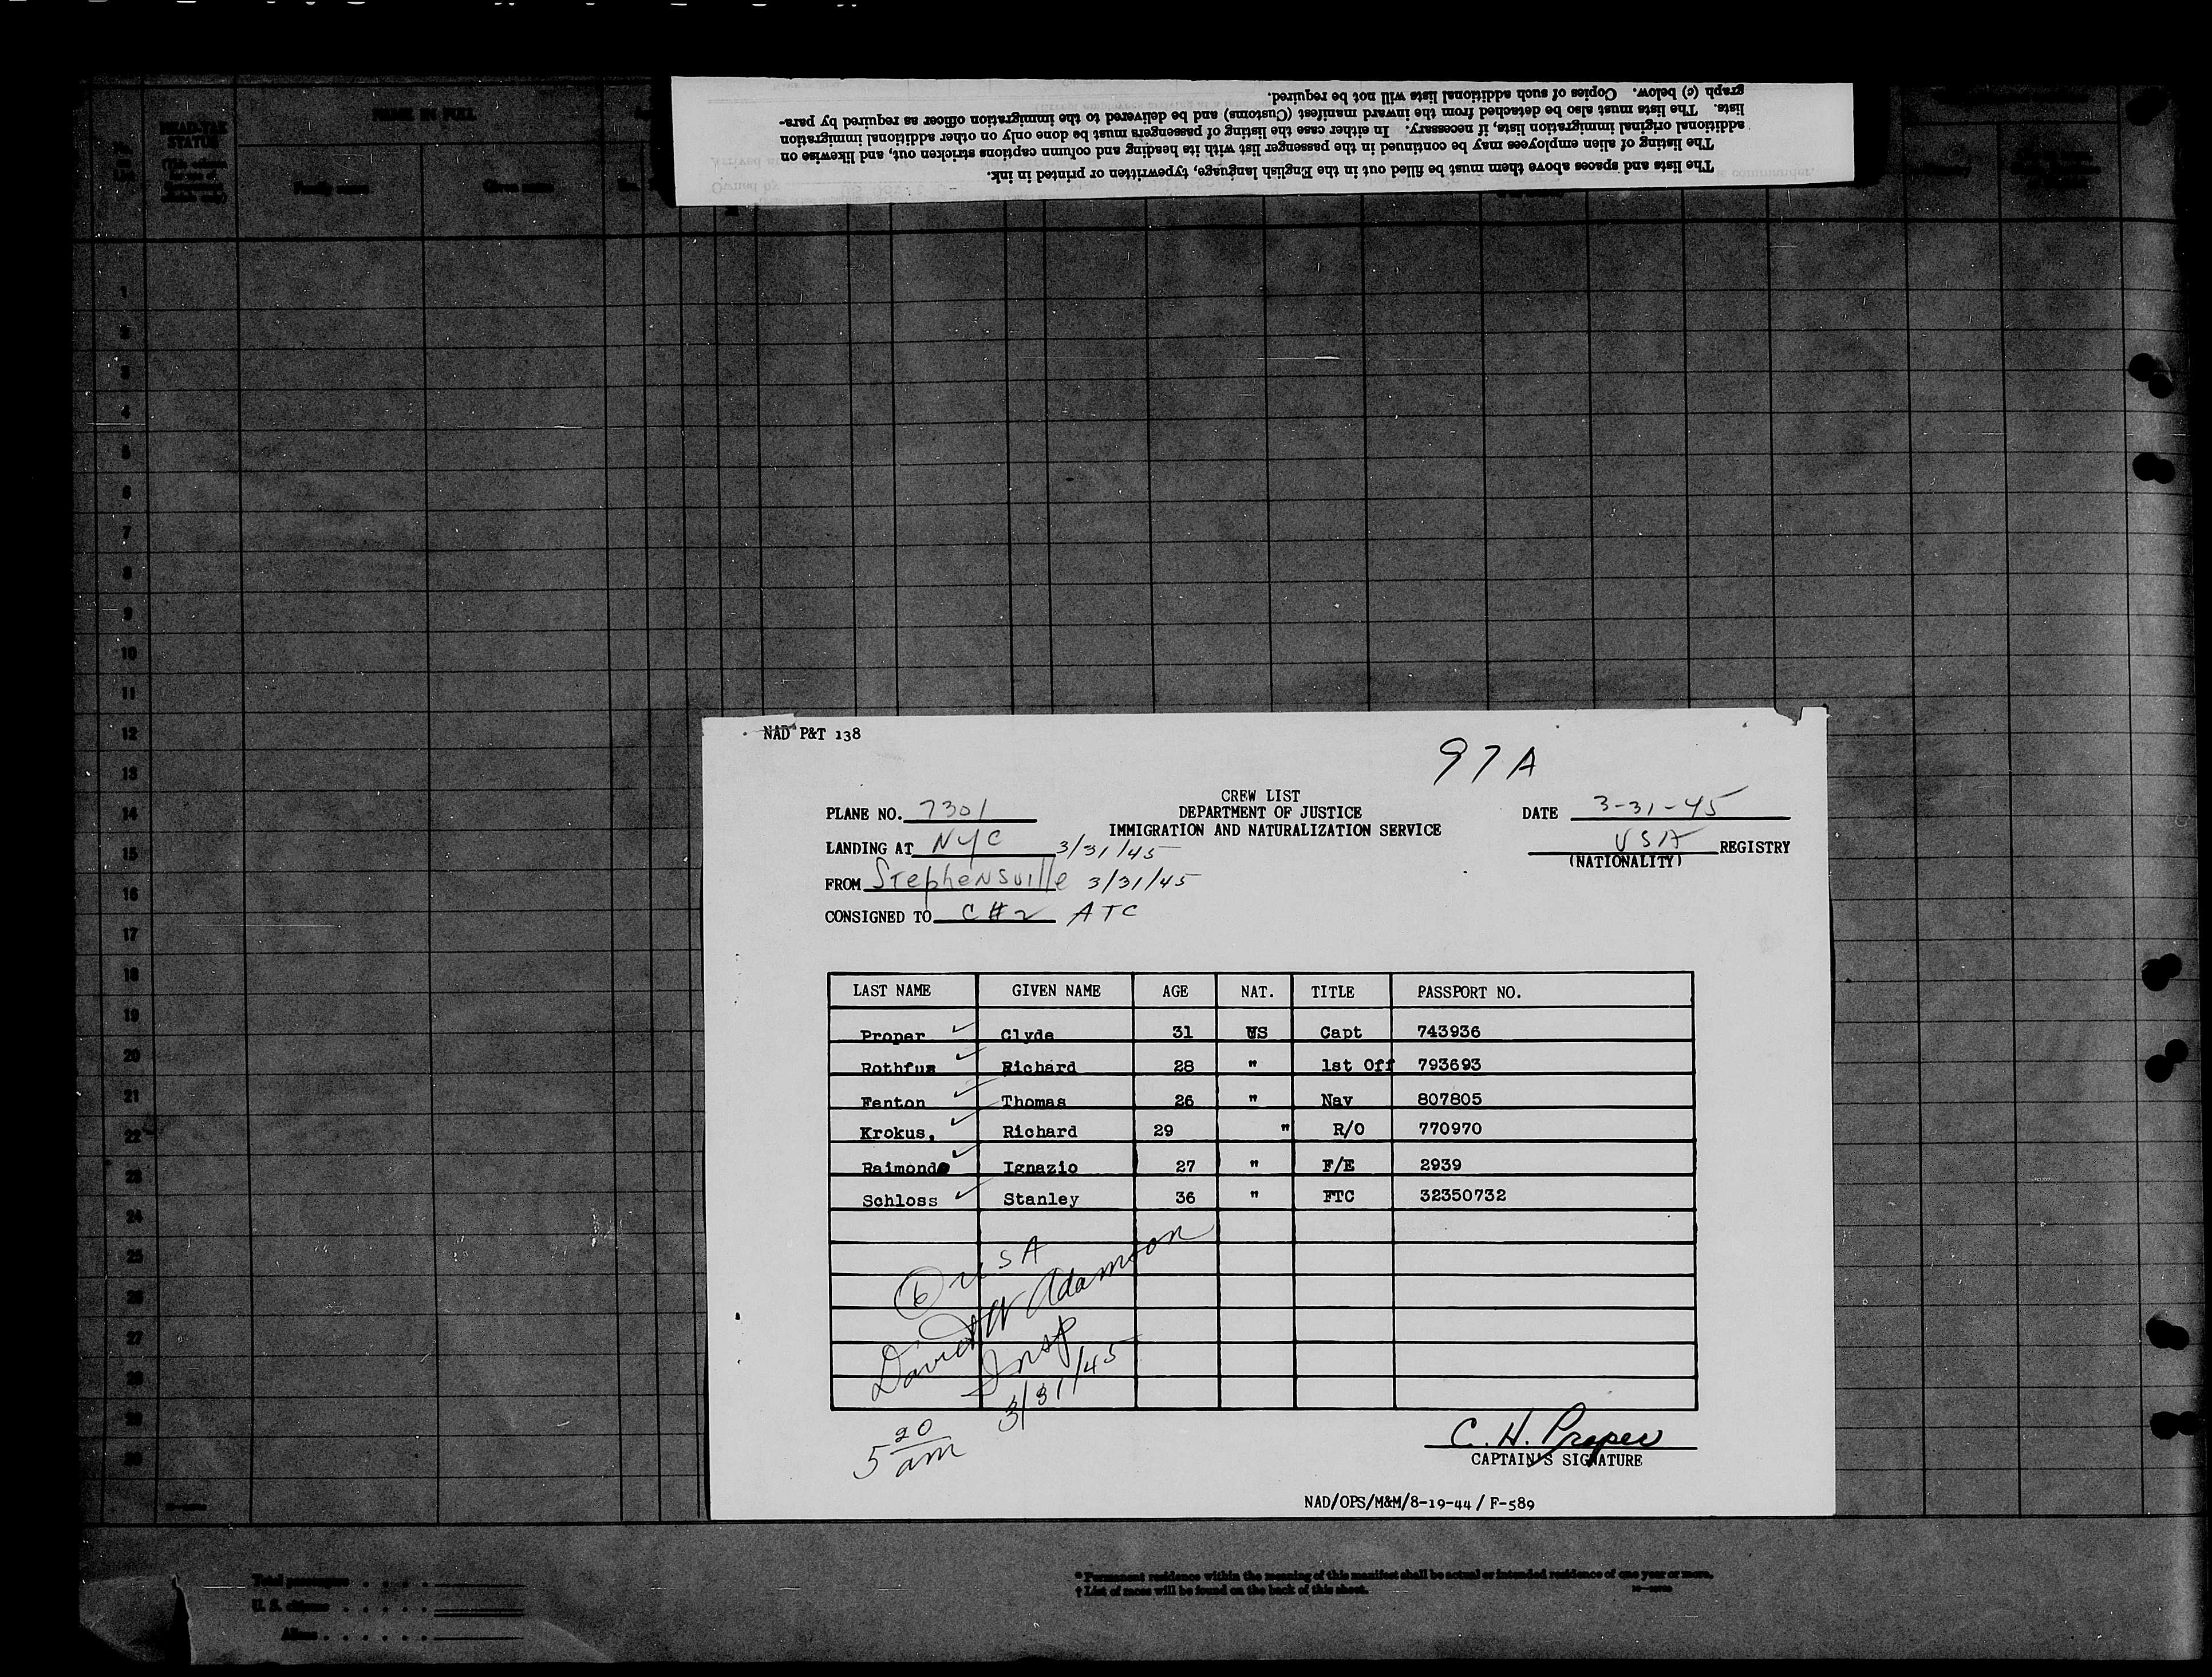 The lists and spaces above them must be filled out in the English language, typewritten or printed in ink.
The listing of alien employees may be continued in the passenger list with its heading and column captions stricken out, and likewise on
additional original immigration lists, if necessary. In either case the listing of passengers must be done only on other additional immigration
lists. The lists must also be detached from the inward manifest (Customs) and be delivered to the immigration officer as required by para-
graph (c) below. Copies of such additional lists will not be required.
HEAD-TAX STATUS
NAME IN FULL
Family name Given name
1
2
3
4
5
6
7
8
9
10
11
12
13
14
15
16
17
18
19
20
21
22
23
24
25
26
27
28
29
30
NAD P&T 138
97A
CREW LIST
DEPARTMENT OF JUSTICE
IMMIGRATION AND NATURALIZATION SERVICE
PLANE NO. 7301
DATE 3-31-45
LANDING AT NYC 3/31/45
USA REGISTRY
(NATIONALITY)
FROM Stephensville 3/31/45
CONSIGNED TO C#2 ATC
LAST NAME GIVEN NAME AGE NAT. TITLE PASSPORT NO.
Proper ✓ Clyde 31 US Capt 743936
Rothfus ✓ Richard 28 " 1st Off 793693
Fenton ✓ Thomas 26 " Nav 807805
Krokus, ✓ Richard 29 " R/O 770970
Raimondo ✓ Ignazio 27 " F/E 2939
Schloss ✓ Stanley 36 " FTC 32350732
6 USA
David W Adamson
Insp
3/31/45
5 20 am
C. H. Proper
CAPTAIN'S SIGNATURE
NAD/OPS/M&M/8-19-44/ F-589
Total passengers . . . .
U. S. citizens . . . . .
Aliens . . . . . .
* Permanent residence within the meaning of this manifest shall be actual or intended residence of one year or more.
† List of races will be found on the back of this sheet.